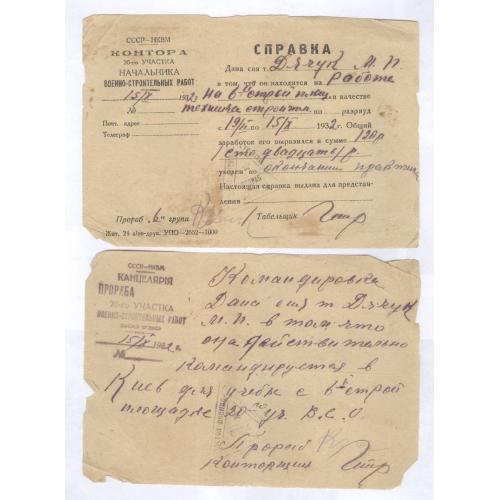 СССР—НКВМ
КОНТОРА
20-го УЧАСТКА
НАЧАЛЬНИКА
ВОЕННО-СТРОИТЕЛЬНЫХ РАБОТ
15/X 1932
№
Почт. адрес
Телеграф
СПРАВКА
Дана сия т. Дячук М. П.
в том что он находится на работе
на 6й строй площ в качестве
техника строит. на разряд
с 19/ по 15/X 1932 г. Общий
заработок его выразился в сумме 120р
/сто двадцать/ р.
уволен по окончании практики
Настоящая справка выдана для представ-
ления
Прораб 6й групи Табельщик
Жит. 24 УПО—2652—1000
СССР—НКВМ
КАНЦЕЛЯРІЯ
ПРОРАБА
20-го УЧАСТКА
ВОЕННО-СТРОИТЕЛЬНЫХ РАБОТ
15/X 1932 г.
№
Командировка
Дана сия т Дячук
М. П. в том что
она действительно
командируется в
Киев для учебы с 6й строй
площадки 20 уч. В.С.О.
Прораб
Конторщик